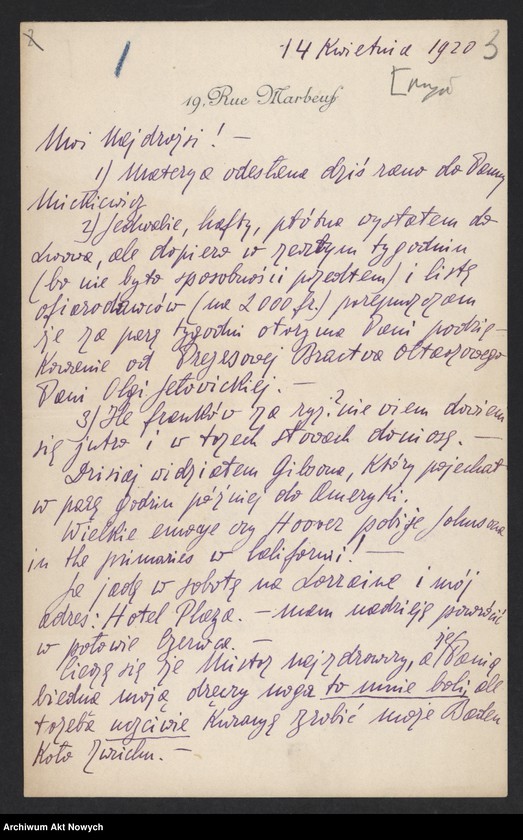 2
1
14 Kwietnia 1920 3
19, Rue Marbeuf
Moi Najdrożsi! —
1) Materya odesłana dziś rano do Panny
Mickiewicz
2) Jedwabie, hafty, płótna wysłałem do
Lwowa, ale dopiero w zeszłym tygodniu
(bo nie było sposobności przedtem) i listę
ofiarodawców (na 2000 fr.) przypuszczam
że za parę tygodni otrzyma Pani podzię-
kowanie od Prezesowej Bractwa Ołtarzowego
Pani Olgi Jełowickiej. —
3) Ile franków za ryż? nie wiem dowiem
się jutro i w trzech słowach doniosę. —
Dzisiaj widziałem Gibsona, który pojechał
w parę godzin później do Ameryki.
Wielkie emocje czy Hoover pobije Johnsona
in the primaries w Californi! —
Ja jadę w sobotę na Lorraine i mój
adres: Hotel Plaza. — mam nadzieję powrócić
w połowie Czerwca. —
Cieszę się że Mistrz najzdrowszy, a że Panią
biedną moją dręczy noga to mnie boli, ale
trzeba uczciwie kuracyę zrobić może Baden
koło Zurichu. —
Archiwum Akt Nowych